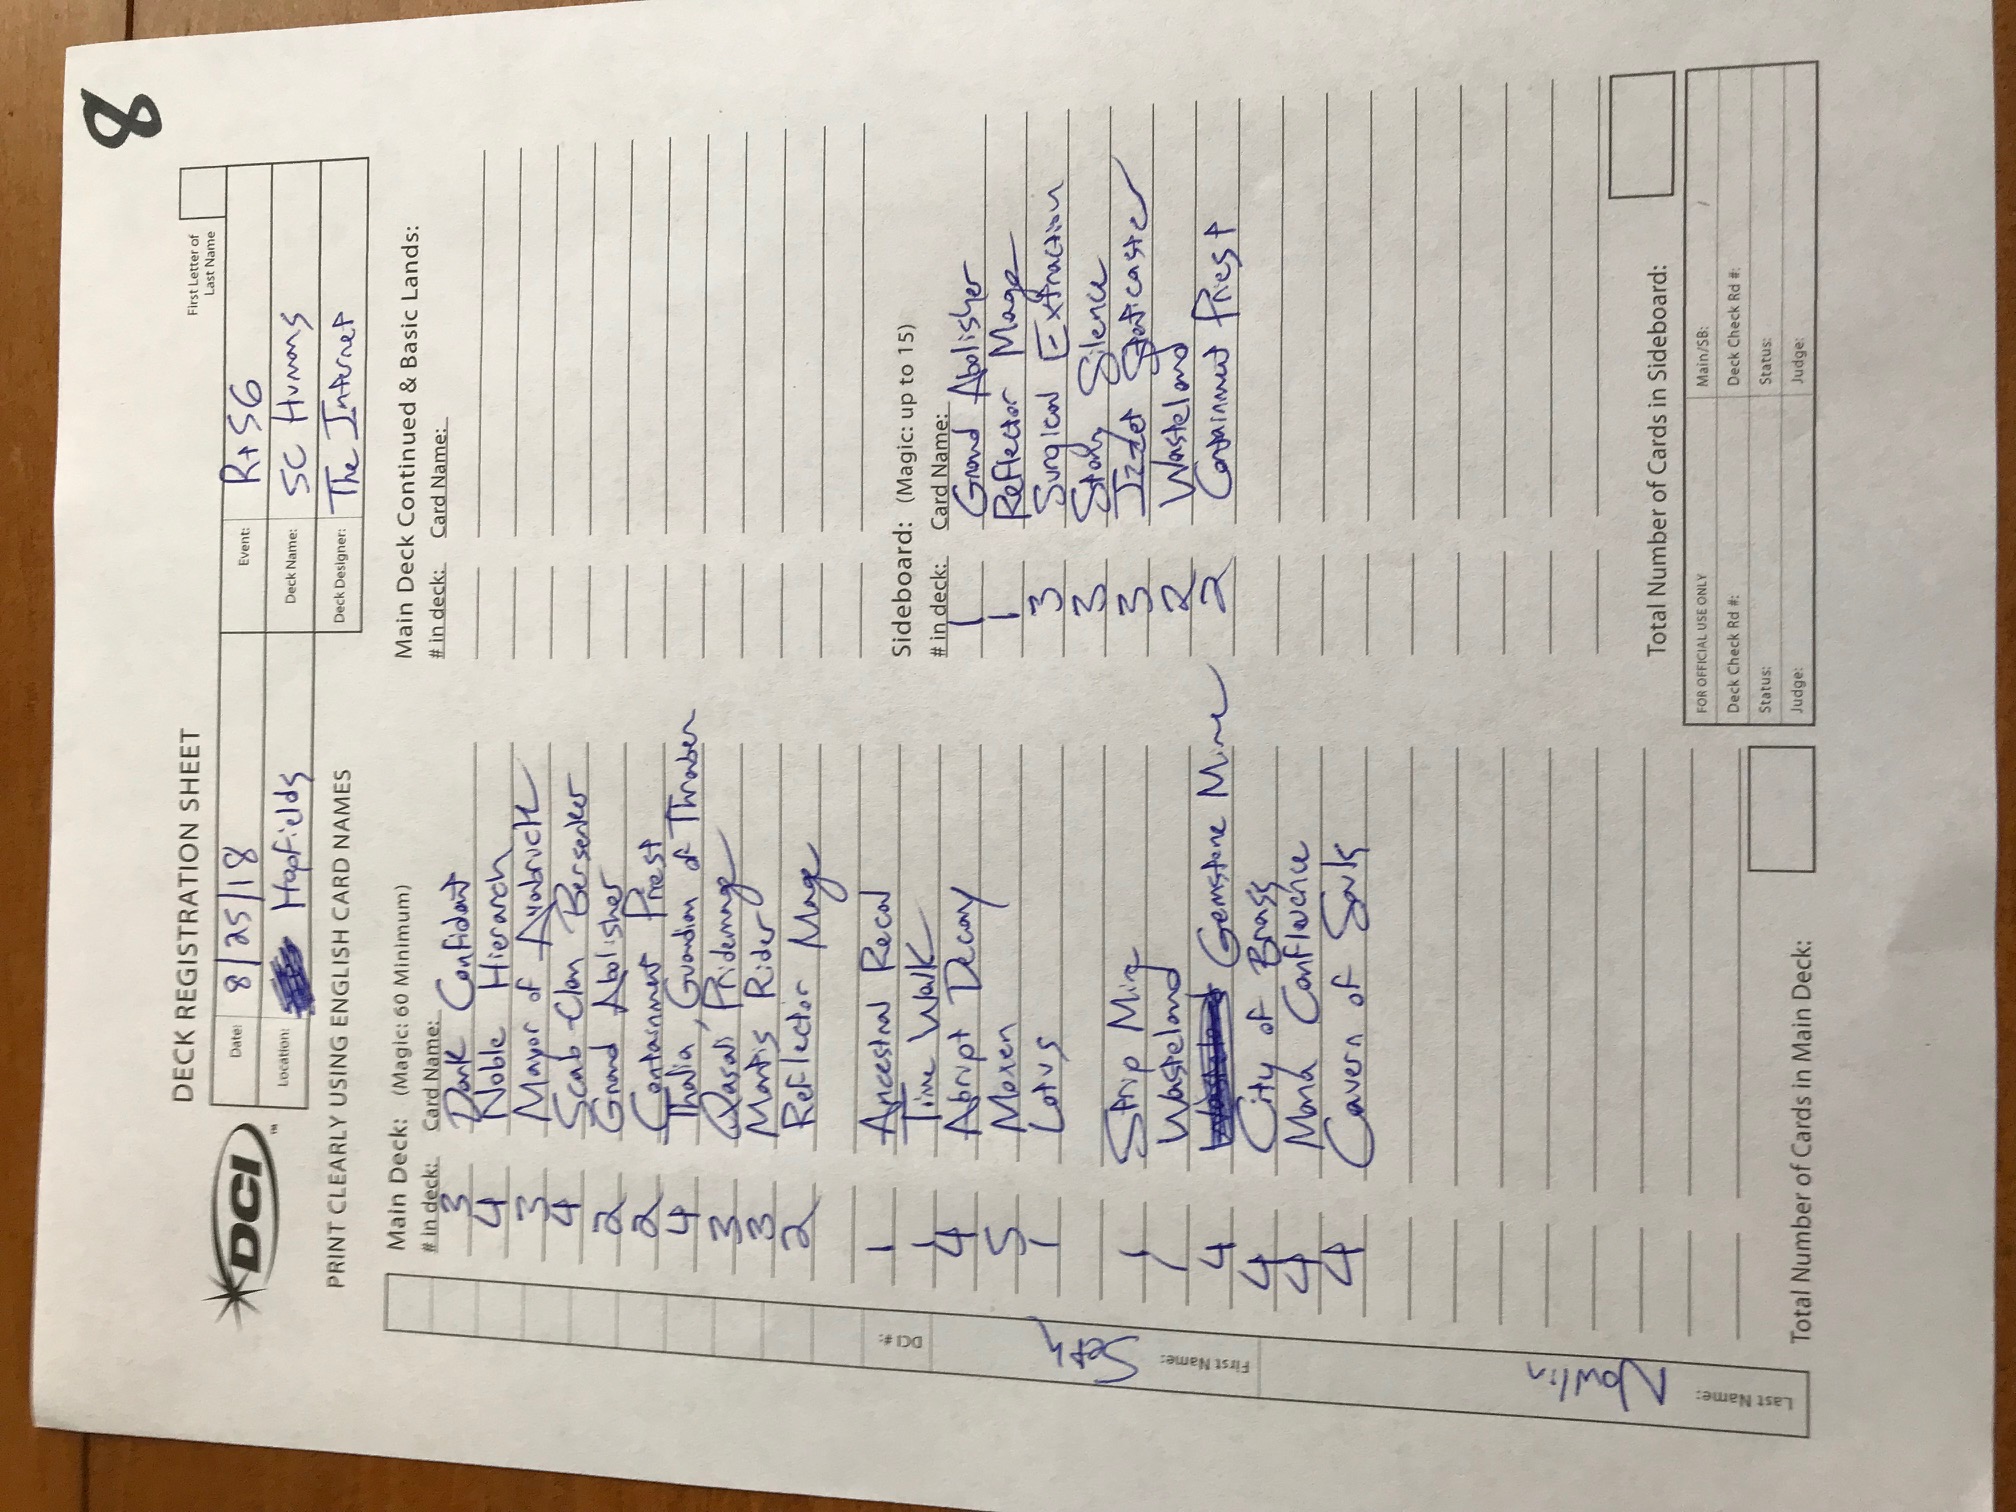 8
DECK REGISTRATION SHEET
First Letter of
Last Name
DCI
™
Date: 8/25/18
Event: R+SG
Location: Hopfields
Deck Name: 5C Humans
PRINT CLEARLY USING ENGLISH CARD NAMES
Deck Designer: The Internet
Main Deck: (Magic: 60 Minimum)
# in deck: Card Name:
3 Dark Confidant
4 Noble Hierarch
3 Mayor of Avabruck
4 Scab-Clan Berserker
2 Grand Abolisher
2 Containment Priest
4 Thalia, Guardian of Thraben
3 Qasali Pridemage
3 Mantis Rider
2 Reflector Mage
1 Ancestral Recal
1 Time Walk
4 Abrupt Decay
5 Moxen
1 Lotus
1 Strip Mine
1 Wasteland
4 Gemstone Mine
4 City of Brass
4 Mana Confluence
4 Cavern of Souls
Total Number of Cards in Main Deck:
Main Deck Continued & Basic Lands:
# in deck: Card Name:
Sideboard: (Magic: up to 15)
# in deck: Card Name:
1 Grand Abolisher
1 Reflector Mage
3 Surgical Extraction
3 Stony Silence
3 Izzet Staticaster
2 Wasteland
2 Containment Priest
Total Number of Cards in Sideboard:
FOR OFFICIAL USE ONLY
Main/SB: /
Deck Check Rd #:
Deck Check Rd #:
Status:
Status:
Judge:
Judge:
Last Name: Nowlin
First Name: Seth
DCI #: